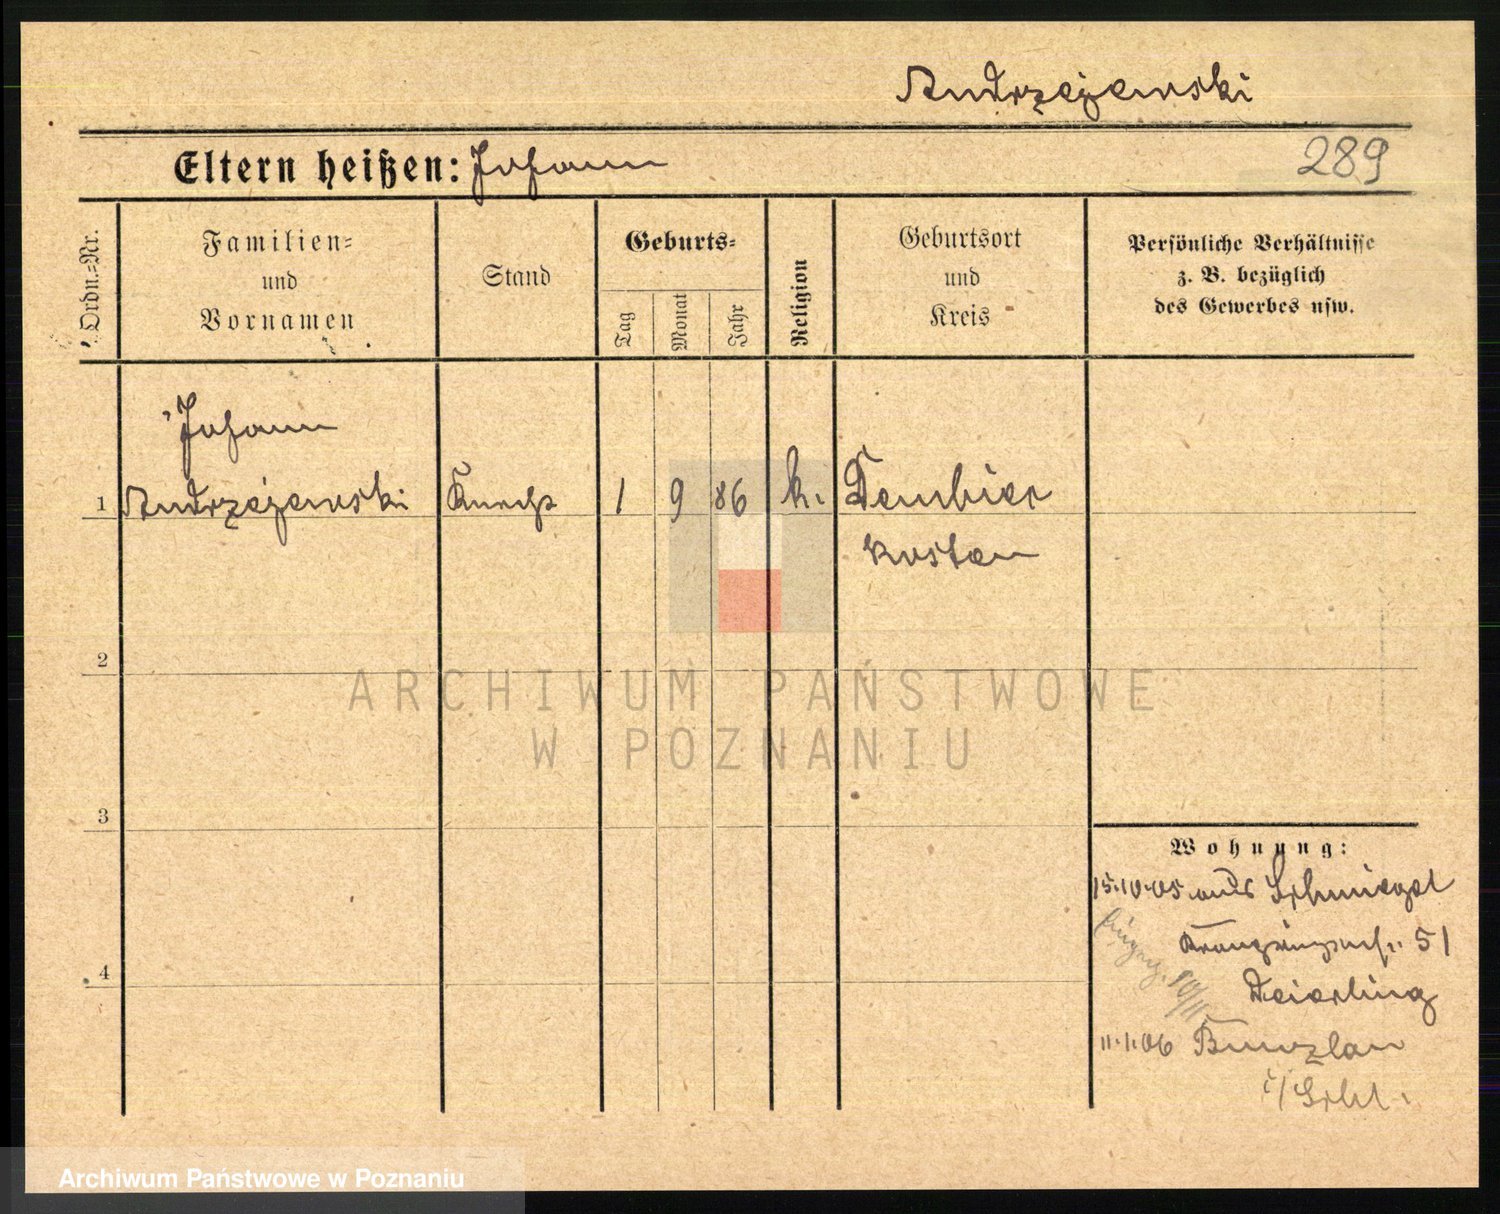 Andrzejewski
Eltern heißen: Johann
289
Ordn.-Nr.
Familien- und Vornamen
Stand
Geburts-
Tag
Monat
Jahr
Religion
Geburtsort und Kreis
Persönliche Verhältnisse
z. B. bezüglich
des Gewerbes usw.
Johann
1 Andrzejewski Knecht 1 9 86 k. Dembiec
Kosten
2
3
4
Wohnung:
15.10.05 aus Schmiegel
51
Deierling
11.1.06 Bunzlau
i/Schl.
ARCHIWUM PAŃSTWOWE
W POZNANIU
Archiwum Państwowe w Poznaniu